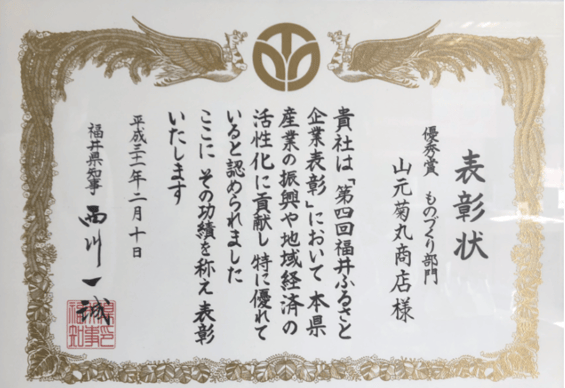 表彰状
優秀賞 ものづくり部門
山元菊丸商店様
貴社は「第四回福井ふるさと
企業表彰」において 本県
産業の振興や地域経済の
活性化に貢献し 特に優れて
いると認められました
ここに その功績を称え 表彰
いたします
平成三十一年二月十日
福井県知事 西川一誠